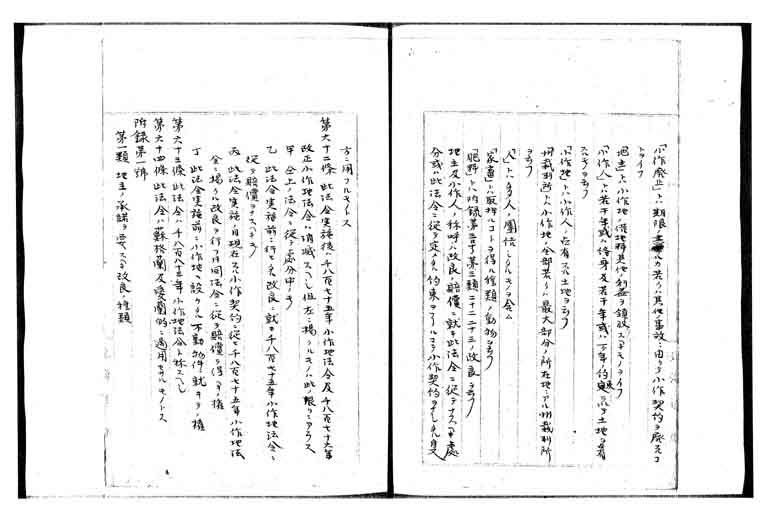 「小作廃止」トハ期限ノ 若クハ其他ノ事故ニ由リテ小作契約ヲ廃スコ
トヲイフ
「地主」トハ小作地ノ借地料其他ノ利益ヲ領収スヘキモノヲイフ
「小作人」トハ若干年或ハ終身及若干年或ハ万年ノ約束ニテ土地ヲ占有
スルモノヲ云フ
「小作地」トハ小作人ノ占有スル土地ヲ云フ
「州裁判所」トハ小作地ノ全部若クハ最大部分ノ所在地ニアル州裁判所
ヲ云フ
「人」トハ多人ノ團結シタルモノヲ含ム
「家畜」トハ取押ルコトヲ得ル種類ノ動物ヲ云フ
「肥料」トハ附録第一号第三類二十二二十三ノ改良ヲ云フ
地主及小作人ノ称呼ハ改良ノ賠償ニ就キ此法令ニ從テナスヘキ處
分或ハ此法令ニ從テ定メタル約束ヲ了ルマテ小作契約ヲナシタル雙
方ニ用フルモノトス
第六十二條 此法令実施後ハ千八百七十五年小作地法令及千八百七十六年
改正小作地法令ハ消滅スヘシ但左ニ掲クルモノハ此ノ限リニアラス
甲 仝上ノ法令ニ從テ處分中ノモノ
乙 此法令実施前ニ行ヒタル改良ニ就キ千八百七十五年小作地法令ニ
從テ賠償ヲナスヘキモノ
丙 此法令実施ノ日現在スル小作契約ニ從ヒ千八百七十五年小作地法
令ニ掲クル改良ヲ行フ 同法令ニ從テ賠償ヲ得ヘキ權
丁 此法令実施前ニ小作地ニ設ケタル不動物件ニ就キテノ權
第六十三條 此法令ハ千八百八十三年小作地法令ト称スヘシ
第六十四條 此法令ハ蘇格蘭及愛蘭ニ適用セサルモノトス
附録第一號
第一類 地主ノ承諾ヲ要スヘキ改良ノ種類